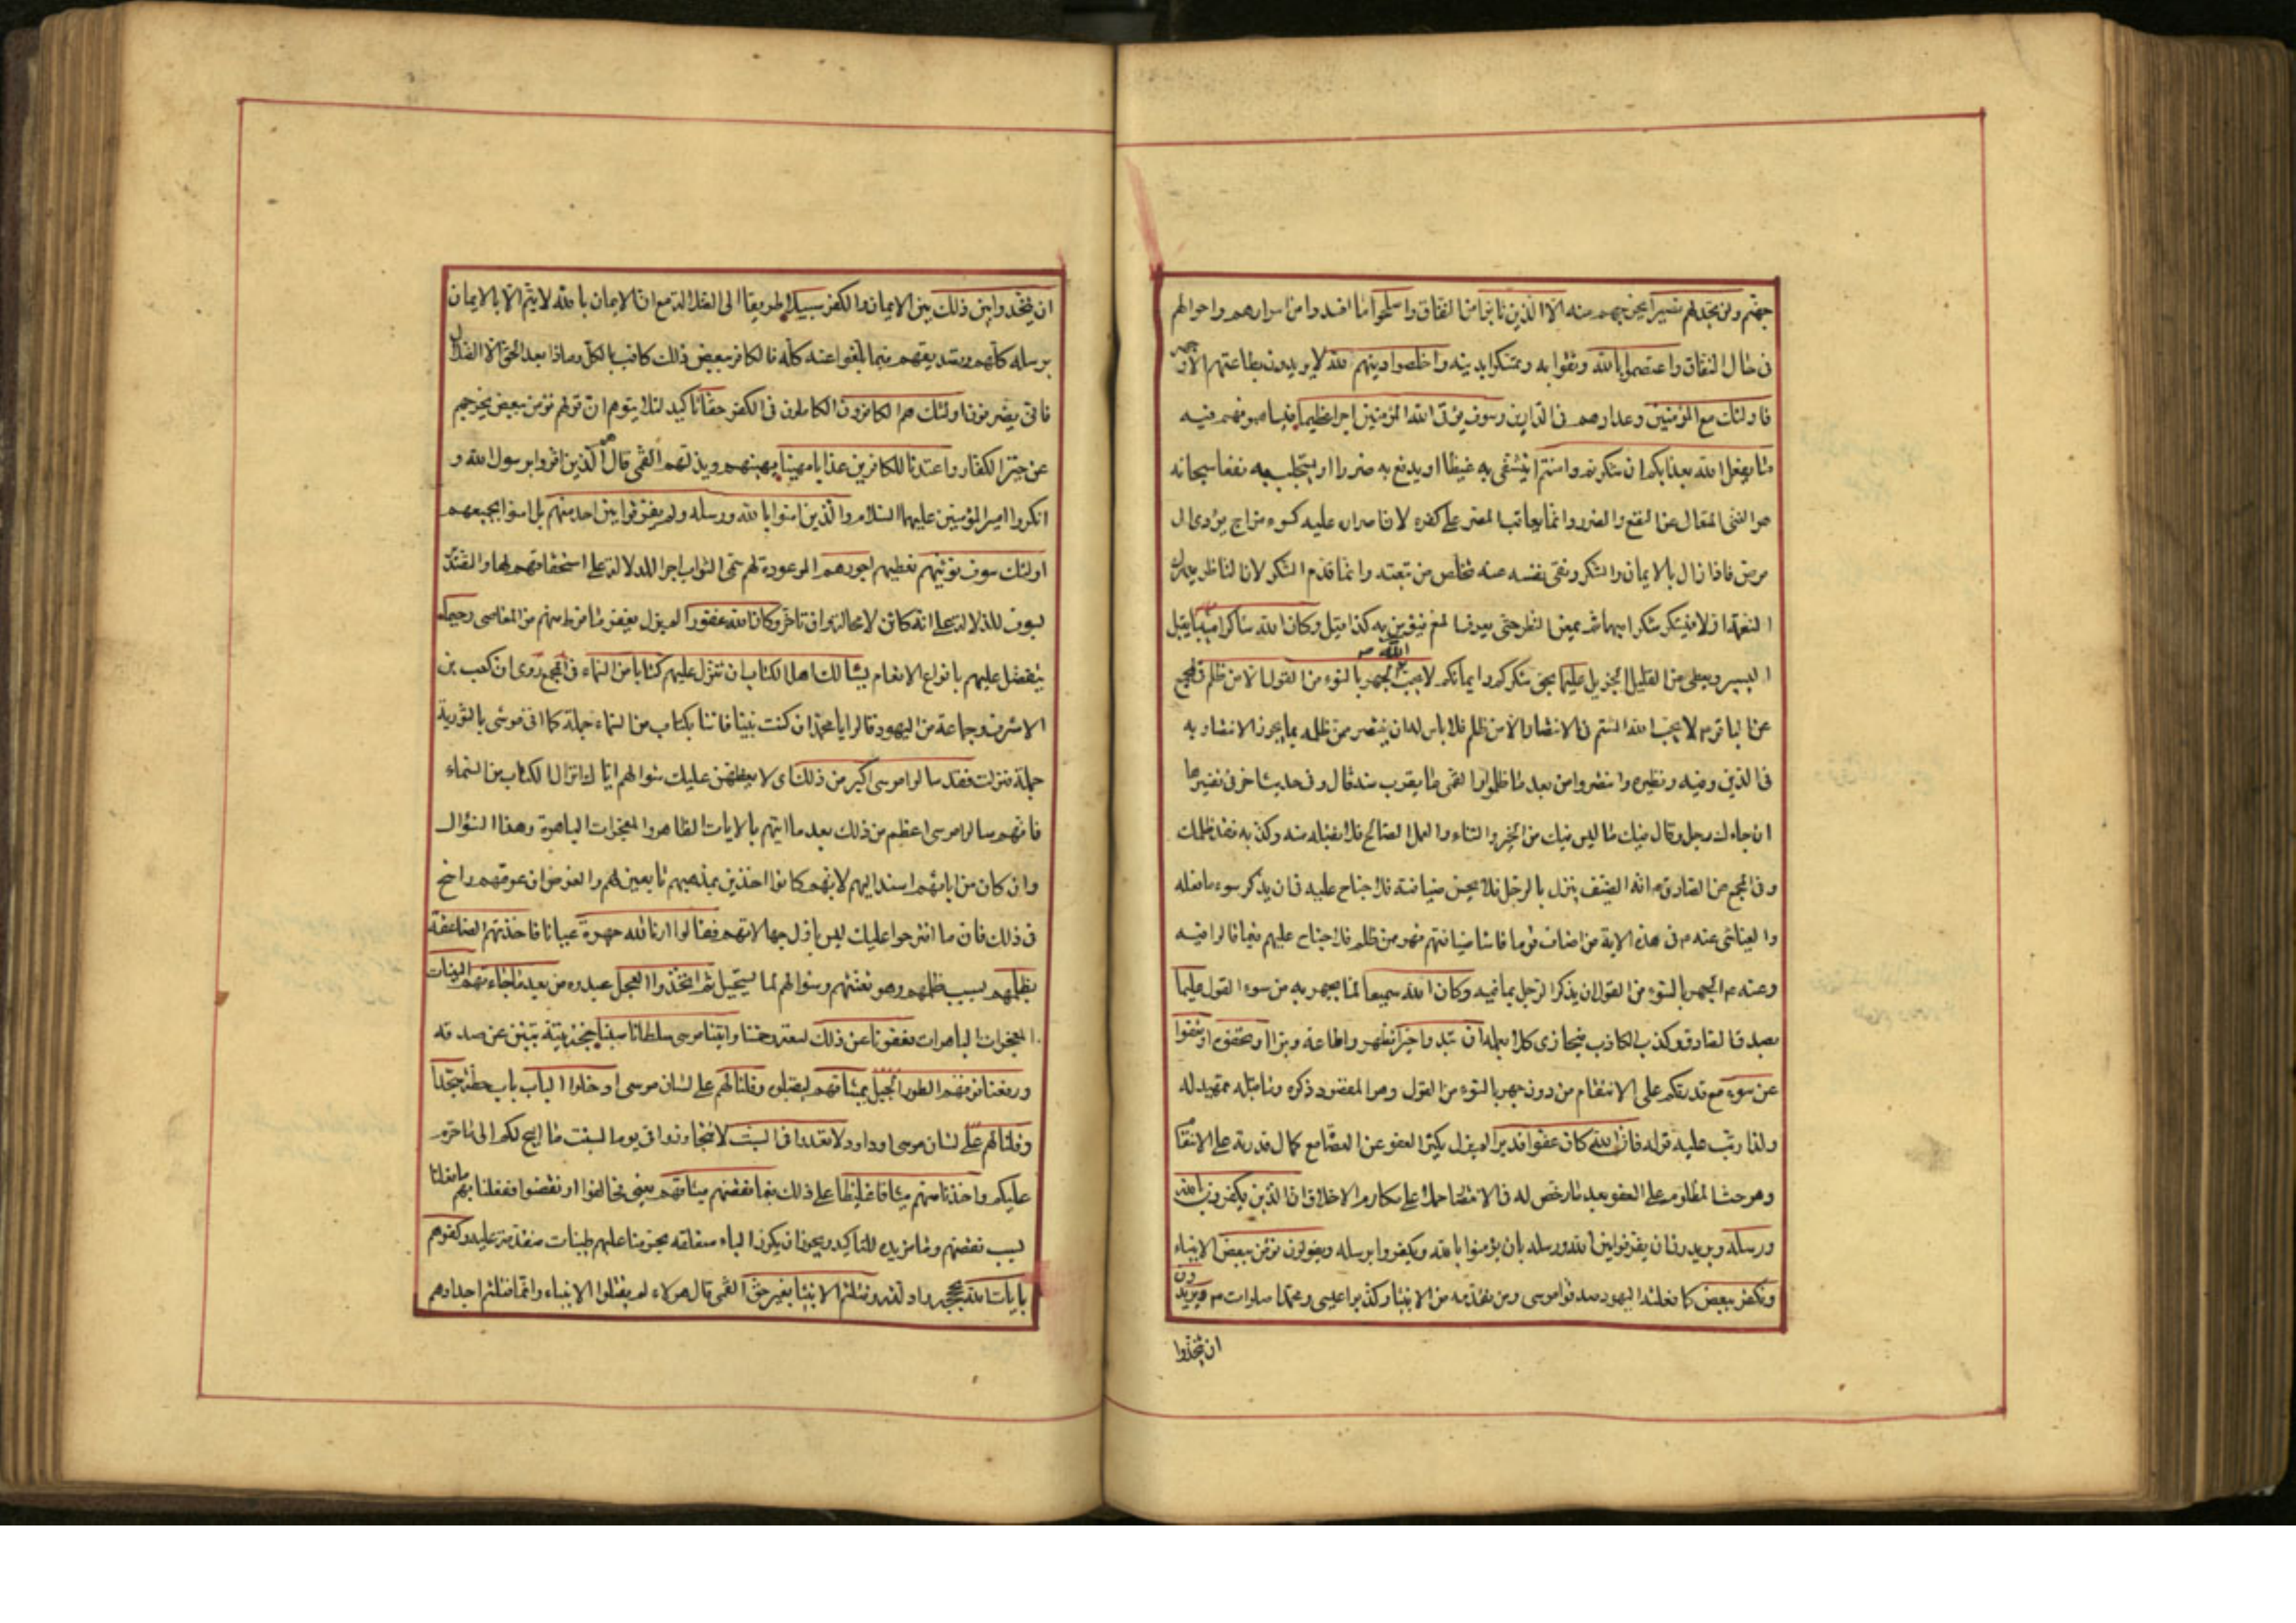 جهنم ولن تجد لهم نصيرا يخرجهم منه الا الذين تابوا من النفاق واصلحوا ما افسدوا من اسرارهم واحوالهم
فى حال النفاق واعتصموا بالله وثقوا به وتمسكوا بدينه واخلصوا دينهم لله لا يريدون بطاعتهم الا وجهه
فاولئك مع المؤمنين وعدادهم فى الدارين وسوف يؤتى الله المؤمنين اجرا عظيما فيساهمونهم فيه
ما يفعل الله بعذابكم ان شكرتم وامنتم ايتشفى به غيظا او يدفع به ضررا او يستجلب به نفعا سبحانه
هو الغنى المتعال عن النفع والضرر وانما يعاقب المصر على كفره لان اصراره عليه كسوء مزاج يؤدى الى
مرض فاذا زال بالايمان والشكر ونقى نفسه عنه تخلص من تبعته وانما قدم الشكر لان الناظر يدرك
النعمة اولا فيشكر شكرا مبهما ثم يمعن النظر حتى يعرف المنعم فيؤمن به كذا قيل وكان الله شاكرا مثيبا يقبل
اليسير ويعطى من القليل الجزيل عليما بحق شكركم وايمانكم لا يحب الله الجهر بالسوء من القول الا من ظلم فى المجمع
عن الباقر ع لا يحب الله الشتم فى الانتصار الا من ظلم فلا باس له ان ينتصر ممن ظلمه بما يجوز الانتصار به
فى الدين وفيه ونظيره وانتصروا من بعد ما ظلموا القمى ما يقرب منه قال وفى حديث اخر فى تفسيرها
ان جاءك رجل وقال فيك ما ليس فيك من الخير والثناء والعمل الصالح فلا تقبله منه وكذبه فقد ظلمك
وفى المجمع عن الصادق ع انه الضيف ينزل بالرجل فلا يحسن ضيافته فلا جناح عليه فى ان يذكر سوء ما فعله
والعياشى عنه ع فى هذه الاية من اضاف قوما فاساء ضيافتهم فهو ممن ظلم فلا جناح عليهم فيما قالوا فيه
وعنه ع الجهر بالسوء من القول ان يذكر الرجل بما فيه وكان الله سميعا لما يجهر به من سوء القول عليما
بصدق الصادق وكذب الكاذب فيجازى كلا بعمله ان تبدوا خيرا تظهروا طاعة وبرا او تخفوه او تعفوا
عن سوء مع قدرتكم على الانتقام من دون جهر بالسوء من القول وهو المقصود ذكره وما قبله تمهيد له
ولذا رتب عليه قوله فان الله كان عفوا قديرا لم يزل يكثر العفو عن العصاة مع كمال قدرته على الانتقام
وهو حث المظلوم على العفو بعد ما رخص له فى الانتصار حملا على مكارم الاخلاق ان الذين يكفرون بالله
ورسله ويريدون ان يفرقوا بين الله ورسله بان يؤمنوا بالله ويكفروا برسله ويقولون نؤمن ببعض الانبياء
ونكفر ببعض كما فعلته اليهود صدقوا موسى ومن تقدمه من الانبياء وكذبوا عيسى ومحمدا صلوات ع ويريدون
ان يتخذوا
ان يتخذوا بين ذلك بين الايمان والكفر سبيلا طريقا الى الضلالة مع ان الايمان بالله لا يتم الا بالايمان
برسله كلهم وتصديقهم فيما بلغوا عنه كله فالكافر ببعض ذلك كافر بالكل وماذا بعد الحق الا الضلال
فانى يصرفون اولئك هم الكافرون الكاملون فى الكفر حقا تاكيد لئلا يتوهم ان قولهم نؤمن ببعض يخرجهم
عن حيز الكفار واعتدنا للكافرين عذابا مهينا يهينهم ويذلهم القمى قال هم الذين اقروا برسول الله و
انكروا امير المؤمنين عليهما السلام والذين امنوا بالله ورسله ولم يفرقوا بين احد منهم بل امنوا بجميعهم
اولئك سوف نؤتيهم نعطيهم اجورهم الموعودة لهم سمى الثواب اجرا للدلالة على استحقاقهم لها والتصدير
بسوف للدلالة على انه كائن لا محالة وان تاخر وكان الله غفورا لم يزل يغفر ما فرط منهم من المعاصى رحيما
يتفضل عليهم بانواع الانعام يسئالك اهل الكتاب ان تنزل عليهم كتابا من السماء فى المجمع روى ان كعب بن
الاشرف وجماعة من اليهود قالوا يا محمد ان كنت نبيا فاتنا بكتاب من السماء جملة كما اتى موسى بالتورية
جملة فنزلت فقد سالوا موسى اكبر من ذلك اى لا يعظمن عليك سؤالهم اياك انزال الكتاب من السماء
فانهم سالوا موسى اعظم من ذلك بعد ما اتيهم بالايات الظاهرة والمعجزات الباهرة وهذا السؤال
وان كان من ابائهم اسند اليهم لانهم كانوا اخذين بمذهبهم تابعين لهم والغرض ان عرقهم راسخ
فى ذلك فان ما اقترحوا عليك ليس باول جهالاتهم فقالوا ارنا الله جهرة عيانا فاخذتهم الصاعقة
بظلمهم بسبب ظلمهم وهو تعنتهم وسؤالهم لما يستحيل ثم اتخذوا العجل عبدوه من بعد ما جاءتهم البينات
المعجزات الباهرات فعفونا عن ذلك لسعة رحمتنا واتينا موسى سلطانا مبينا حجة بينة تبين عن صدقه
ورفعنا فوقهم الطور الجبل بميثاقهم ليقبلوه وقلنا لهم على لسان موسى ادخلوا الباب باب حطة سجدا
وقلنا لهم على لسان موسى او داود لا تعدوا فى السبت لا تتجاوزوا فى يوم السبت ما ابيح لكم الى ما حرم
عليكم واخذنا منهم ميثاقا غليظا على ذلك فبما نقضهم ميثاقهم يعنى فخالفوا او نقضوا ففعلنا بهم ما فعلنا
بسبب نقضهم وما مزيدة للتاكيد ويجوز ان يكون الباء متعلقة بحرمنا عليهم طيبات متقدمة عليه وكفرهم
بايات الله بحججه وادلته وقتلهم الانبياء بغير حق القمى قال هؤلاء لم يقتلوا الانبياء وانما قتلهم اجدادهم